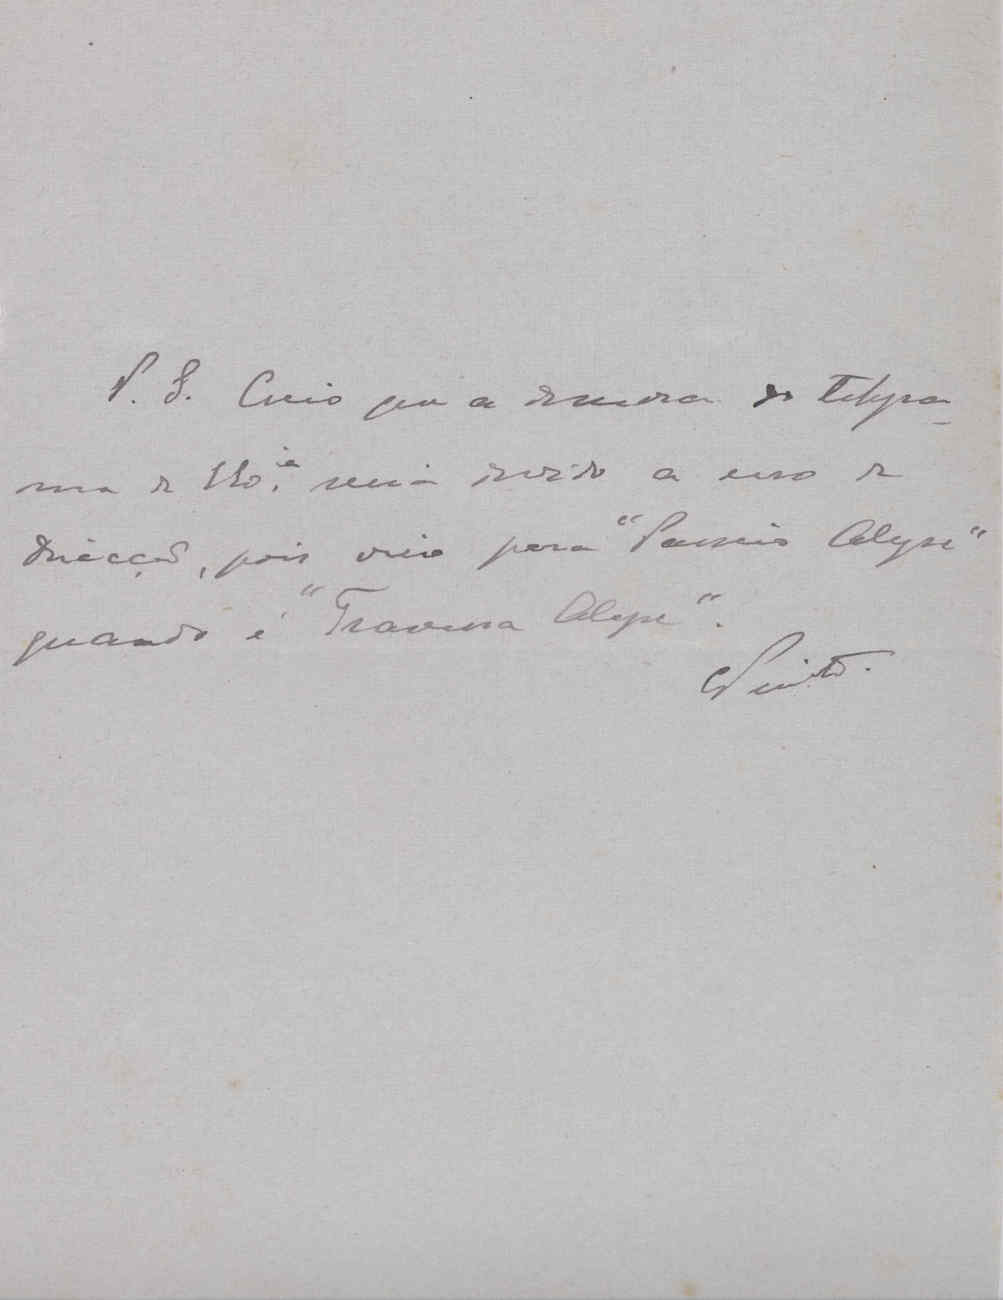 P. S. Creio que a demora do Telegra-
ma de V. Ex.ia seria devido a erro de
direcção, pois veio para "Passeio Alegre"
quando é "Travessa Alegre".
Pinto.